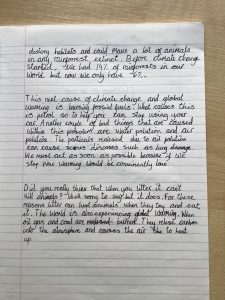 destory habitats and could make a lot of animals
in any rainforest extinct. Before climate change
started, We had 14% of rainforests in our
World but now we only have 6%.
This next cause of climate change and global
warming is burning fossil fuels. What causes this
is petrol so to help you can stop using your
car. Another couple of bad things that are caused
within this problem are water pollution and air
pollution. The particals realised due to air pollution
can cause serious diseases such as lung damage.
We must act as soon as possible because if we
stop now Warming would be conviniently low.
Did you really think that when you litter it can't
kill animals? Well sorry to say but it does. For these
reasons litter can hurt animals when they try and eat
it. The World is also experiencing global warming. When
oil gas and coal are burned. They release carbon
into the atmosphere and causes the air to heat
up.